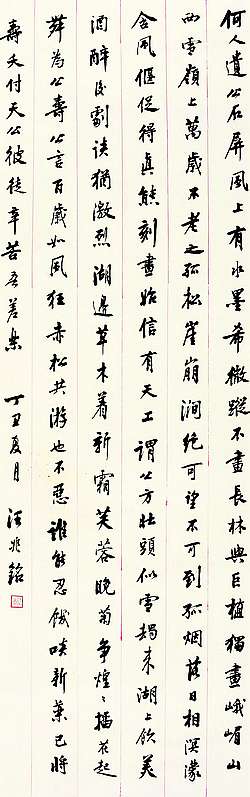 何人遺公石屏風上有水墨希微蹤不畫長林與巨植獨畫峨嵋山
西雪嶺上萬歲不老之孤松崖崩澗絕可望不可到孤烟落日相溟濛
含風偃促得真態刻畫始信有天工謂公方壯頭似雪朅來湖上飲美
酒醉後劇談猶激烈湖邊草木着新霜芙蓉晚菊爭煌〻插花起
舞為公壽公言百歲如風狂赤松共游也不惡誰能忍餓啖新藥已將
壽夭付天公彼徒辛苦吾差樂 丁丑夏月 汪兆銘